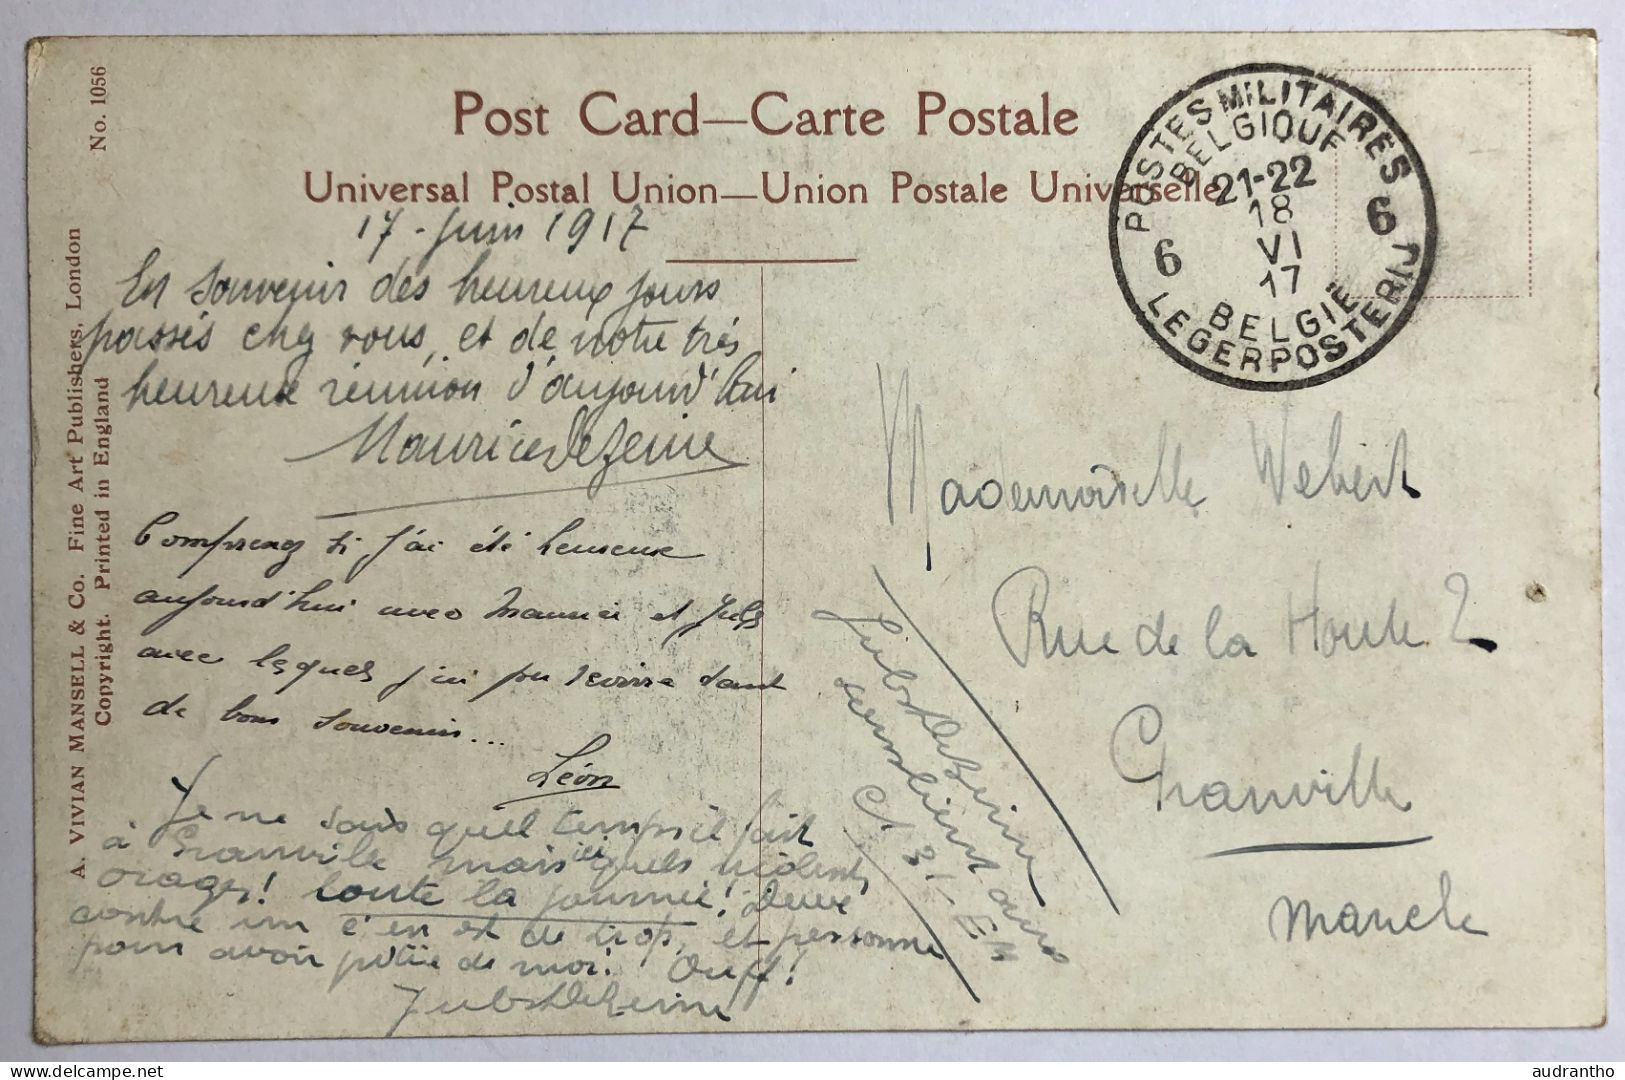 No. 1056
A. VIVIAN MANSELL & Co. Fine Art Publishers, London
Copyright. Printed in England
Post Card—Carte Postale
Universal Postal Union—Union Postale Universelle
POSTES MILITAIRES
BELGIQUE
21-22
18
VI
17
6 6
BELGIË
LEGERPOSTERIJ
17 - Juin 1917
En souvenir des heureux jours
passés chez vous, et de notre très
heureuse réunion d'aujourd'hui
Maurice
Comprenez si j'ai été heureux
aujourd'hui avec Maurice et Jules
avec lesquels j'ai pu revivre tant
de bons souvenirs...
Léon
Je ne sais quel temps il fait
à Granville mais ici quels violents
orages! toute la journée! Deux
contre un c'en est de trop, et personne
pour avoir pitié de moi! Ouff!
Mademoiselle Webert
Rue de la Houle 2
Granville
Manche